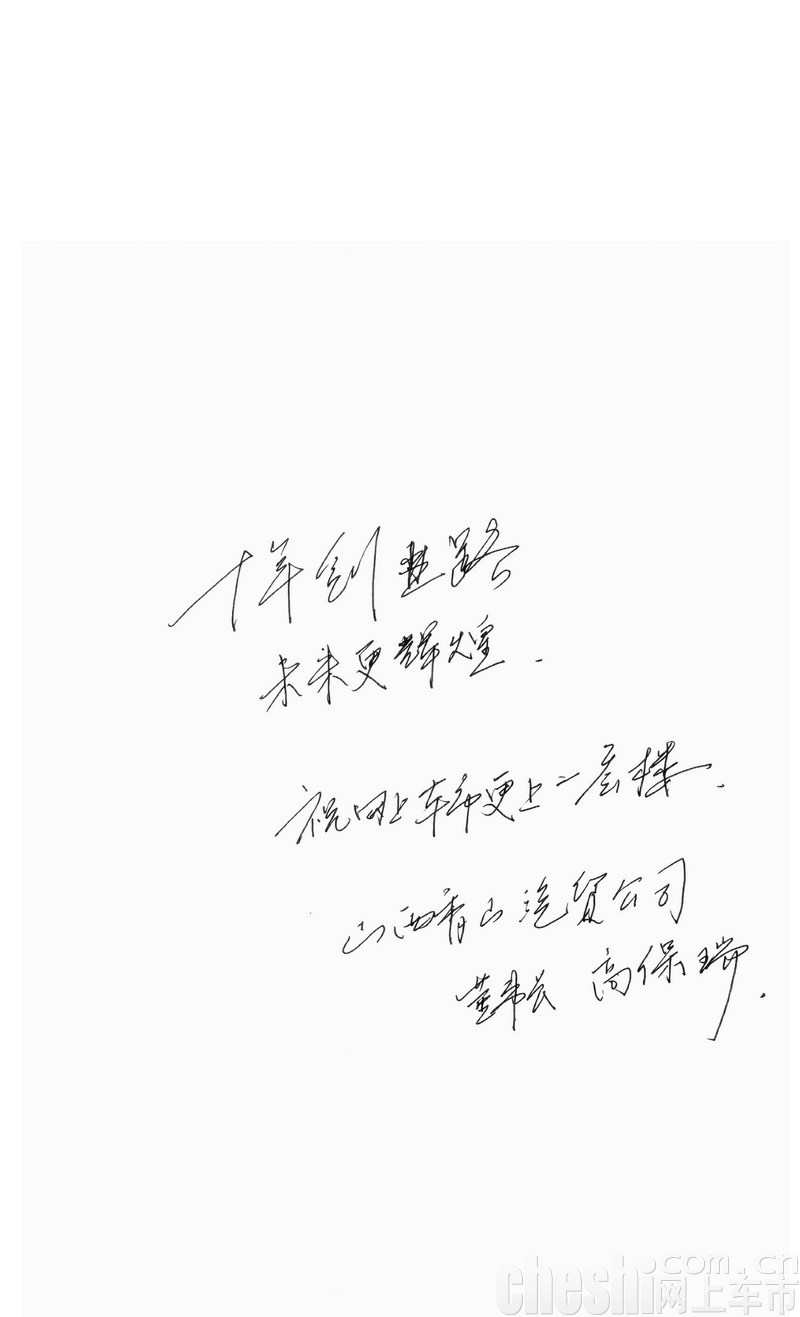 十年创业路
未来更辉煌.
祝网上车市更上一层楼.
山西青山汽贸公司
董事长 高保瑞.
cheshi.com.cn
网上车市